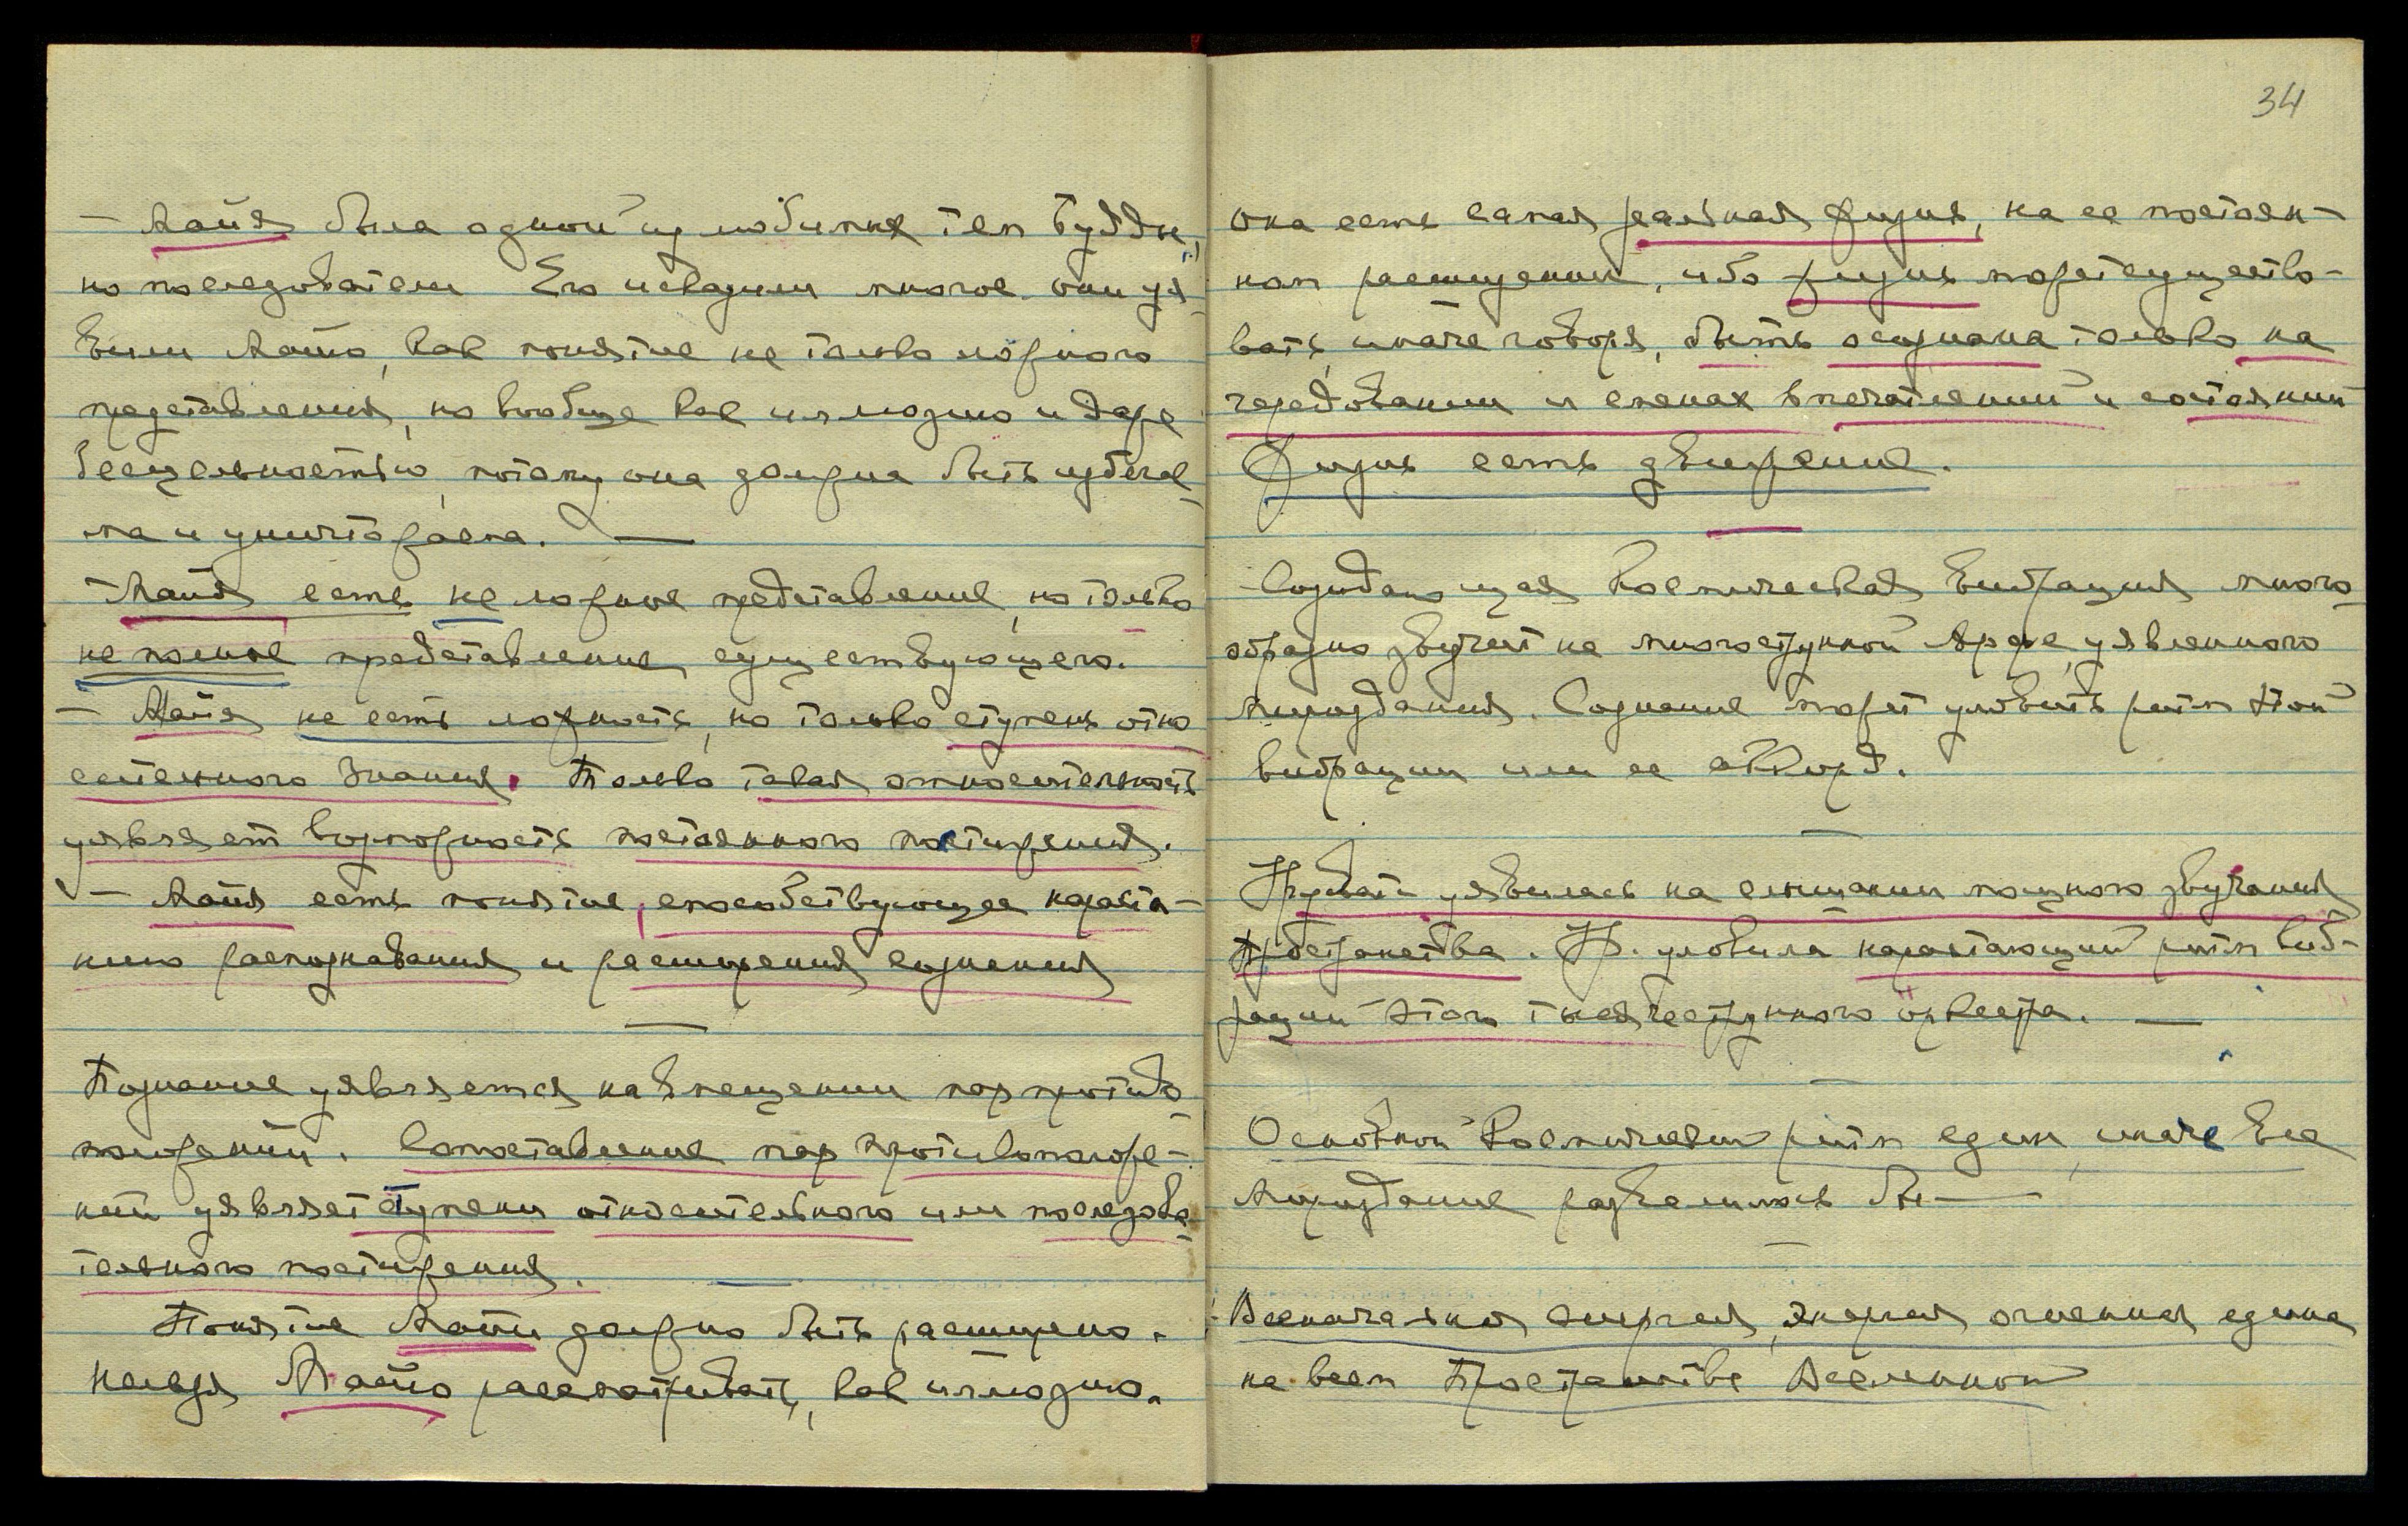 — Майя была одной из любимых тем Будды,
но последователи Его исказили многое. они уя-
вили Майю, как понятие не только ложного
представления, но вообще как иллюзию и даже
бесцельностью, потому она должна быть избега-
ма и уничтожаема. —
— Майя есть не ложное представление, но только
не полное представление существующего.
— Майя не есть ложность, но только ступень отно
сительного Знания. Только такая относительность
уявляет возможность постоянного постижения.
— Майя есть понятие, способствующее нараста-
нию распознавания и расширения сознания
Познание уявляется на вмещении пар противо-
положений. Сопоставление пар противоположе-
ний уявляет ступени относительного или последова-
тельного постижения.
Понятие Майи должно быть расширено.
нельзя Майю рассматривать, как иллюзию.
34
она есть самая реальная жизнь, на ее постоян-
ном расширении, ибо жизнь может существо-
вать, иначе говоря, быть осознана только на
чередовании и сменах впечатлений и состояний
Жизнь есть движение.
Созидающая Космическая Вибрация много-
образно звучит на многострунной Арфе уявленного
Мироздания. Сознание может уловить ритм этой
вибрации или ее аккорд.
Урувати уявилась на слышании мощного звучания
Пространства. Ур. уловила нарастающий ритм виб-
рации этого тысячеструнного оркестра. —
Основной Космический ритм един, иначе Все
Мироздание разделилось бы —
Всеначальная Энергия, Энергия огненная едина
на всем Пространстве Вселенной